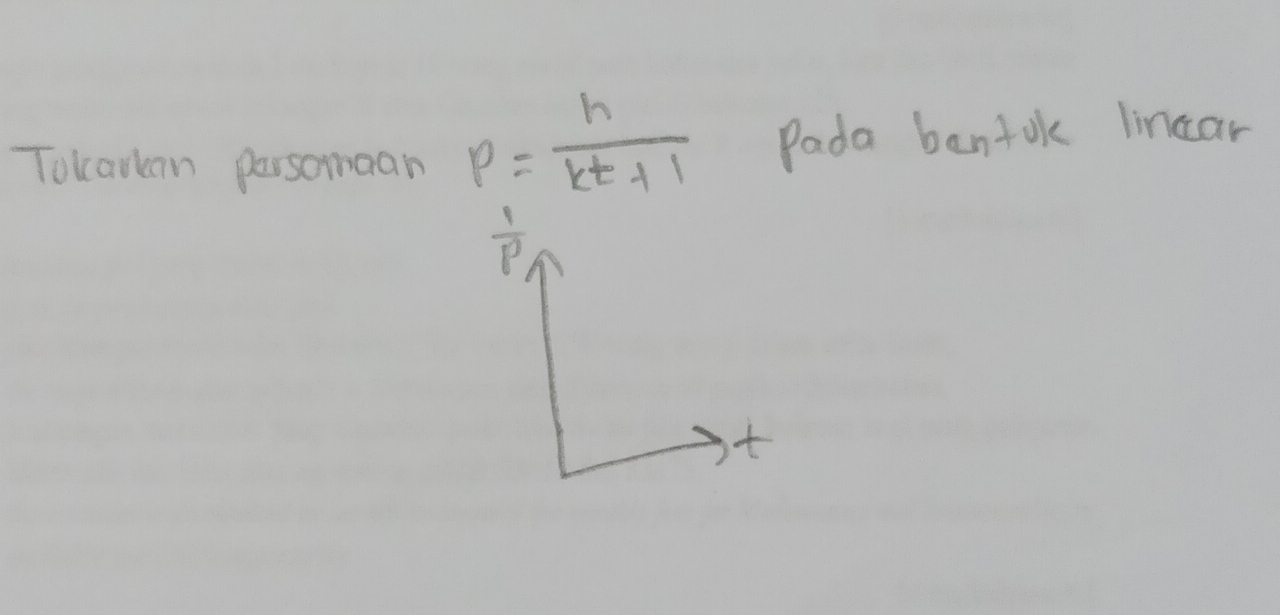 Tukarkan persamaan P = h/(kt + 1) pada bentuk linear
1/P
t